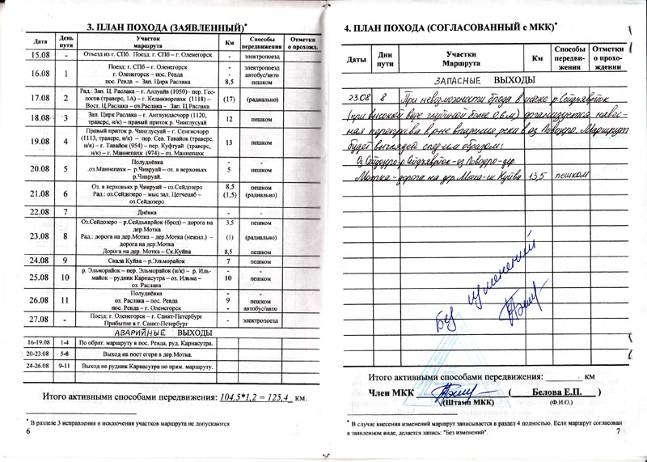 3. ПЛАН ПОХОДА (ЗАЯВЛЕННЫЙ)*
Дата День пути Участок маршрута Км Способы передвижения Отметки о прохожд.
15.08 - Отъезд из г. СПб. Поезд: г. СПб – г. Оленегорск - электропоезд
16.08 1 Поезд: г. СПб – г. Оленегорск - электропоезд
г. Оленегорск – пос. Ревда - автобус/авто
пос. Ревда – Зап. Цирк Раслака 8,5 пешком
17.08 2 Рад.: Зап. Ц. Раслака – г. Аллуайв (1050) - пер. Гео-
логов (траверс, 1А) – г. Кедыквырпахк (1118) – (17) (радиально)
Вост. Ц.Раслака – оз.Раслака – Зап. Ц.Раслака
18.08 3 Зап. Цирк Раслака – г. Ангвундасчорр (1120, 12 пешком
траверс, н/к) – правый приток р. Чинглусуай
19.08 4 Правый приток р. Чинглусуай – г. Сенгисчорр
(1113, траверс, н/к) – пер. Сев. Тавайок (траверс, 13 пешком
н/к) - г. Тавайок (954) – пер. Куфтуай (траверс,
н/к) – г. Маннепахк (974) – оз. Маннепахк
20.08 5 Полуднёвка - -
оз.Маннепахк – р.Чивруай – оз.в верховьях 5 пешком
р.Чивруай.
21.08 6 Оз. в верховьях р.Чивруай – оз.Сейдозеро 8,5 пешком
Рад.: оз.Сейдозеро – мыс зал. Цетчешб – (1,5) (радиально)
оз.Сейдозеро
22.08 7 Днёвка - -
23.08 8 Оз.Сейдозеро – р.Сейдъяврйок (брод) – дорога на 3,5 пешком
дер.Мотка
Рад.: дорога на дер.Мотка – дер.Мотка (нежил.) – (1) (радиально)
дорога на дер.Мотка
Дорога на дер.Мотка – Ск.Куйва 8,5 пешком
24.08 9 Скала Куйва – р.Эльморайок 7 пешком
25.08 10 р.Эльморайок – пер. Эльморайок (н/к) – р. Иль- - -
майок – рудник Карнасурта – оз. Ильма – 14 пешком
оз. Раслака
26.08 11 Полуднёвка - -
оз. Раслака – пос. Ревда 9 пешком
пос. Ревда – г. Оленегорск - автобус/авто
27.08 - Поезд: г. Оленегорск – г. Санкт-Петербург - электропоезд
Прибытие в г. Санкт-Петербург
АВАРИЙНЫЕ ВЫХОДЫ
16-19.08 1-4 По обрат. маршруту в пос. Ревда, руд. Карнасурта.
20-23.08 5-8 Выход на пост егеря в дер.Мотка.
24-26.08 9-11 Выход на рудник Карнасурта по прям. маршруту.
Итого активными способами передвижения: 104,5*1,2 = 125,4 км.
* В разделе 3 исправления и исключения участков маршрута не допускаются
6
4. ПЛАН ПОХОДА (СОГЛАСОВАННЫЙ с МКК)*
Даты Дни пути Участки Маршрута Км Способы передви-жения Отметки о прохо-ждении
ЗАПАСНЫЕ ВЫХОДЫ
23.08 8 При невозможности брода в устье р. Сейдъяврйок
(при высокой воде глубиной более 0,6м) организуется навес-
ная переправа в районе впадения реки в оз. Ловозеро. Маршрут
будет выглядеть следующим образом:
Оз.Сейдозеро-р.Сейдъяврйок-оз.Ловозеро-дер.
Мотка-дорога на дер.Мотка-ск.Куйва 13,5 пешком
Без изменений
Итого активными способами передвижения: . км
Член МКК ( Белова Е.П. )
(Штамп МКК) (Ф.И.О.)
* В случае внесения изменений маршрут записывается в раздел 4 полностью. Если маршрут согласован
в заявленном виде, делается запись: "Без изменений".
7